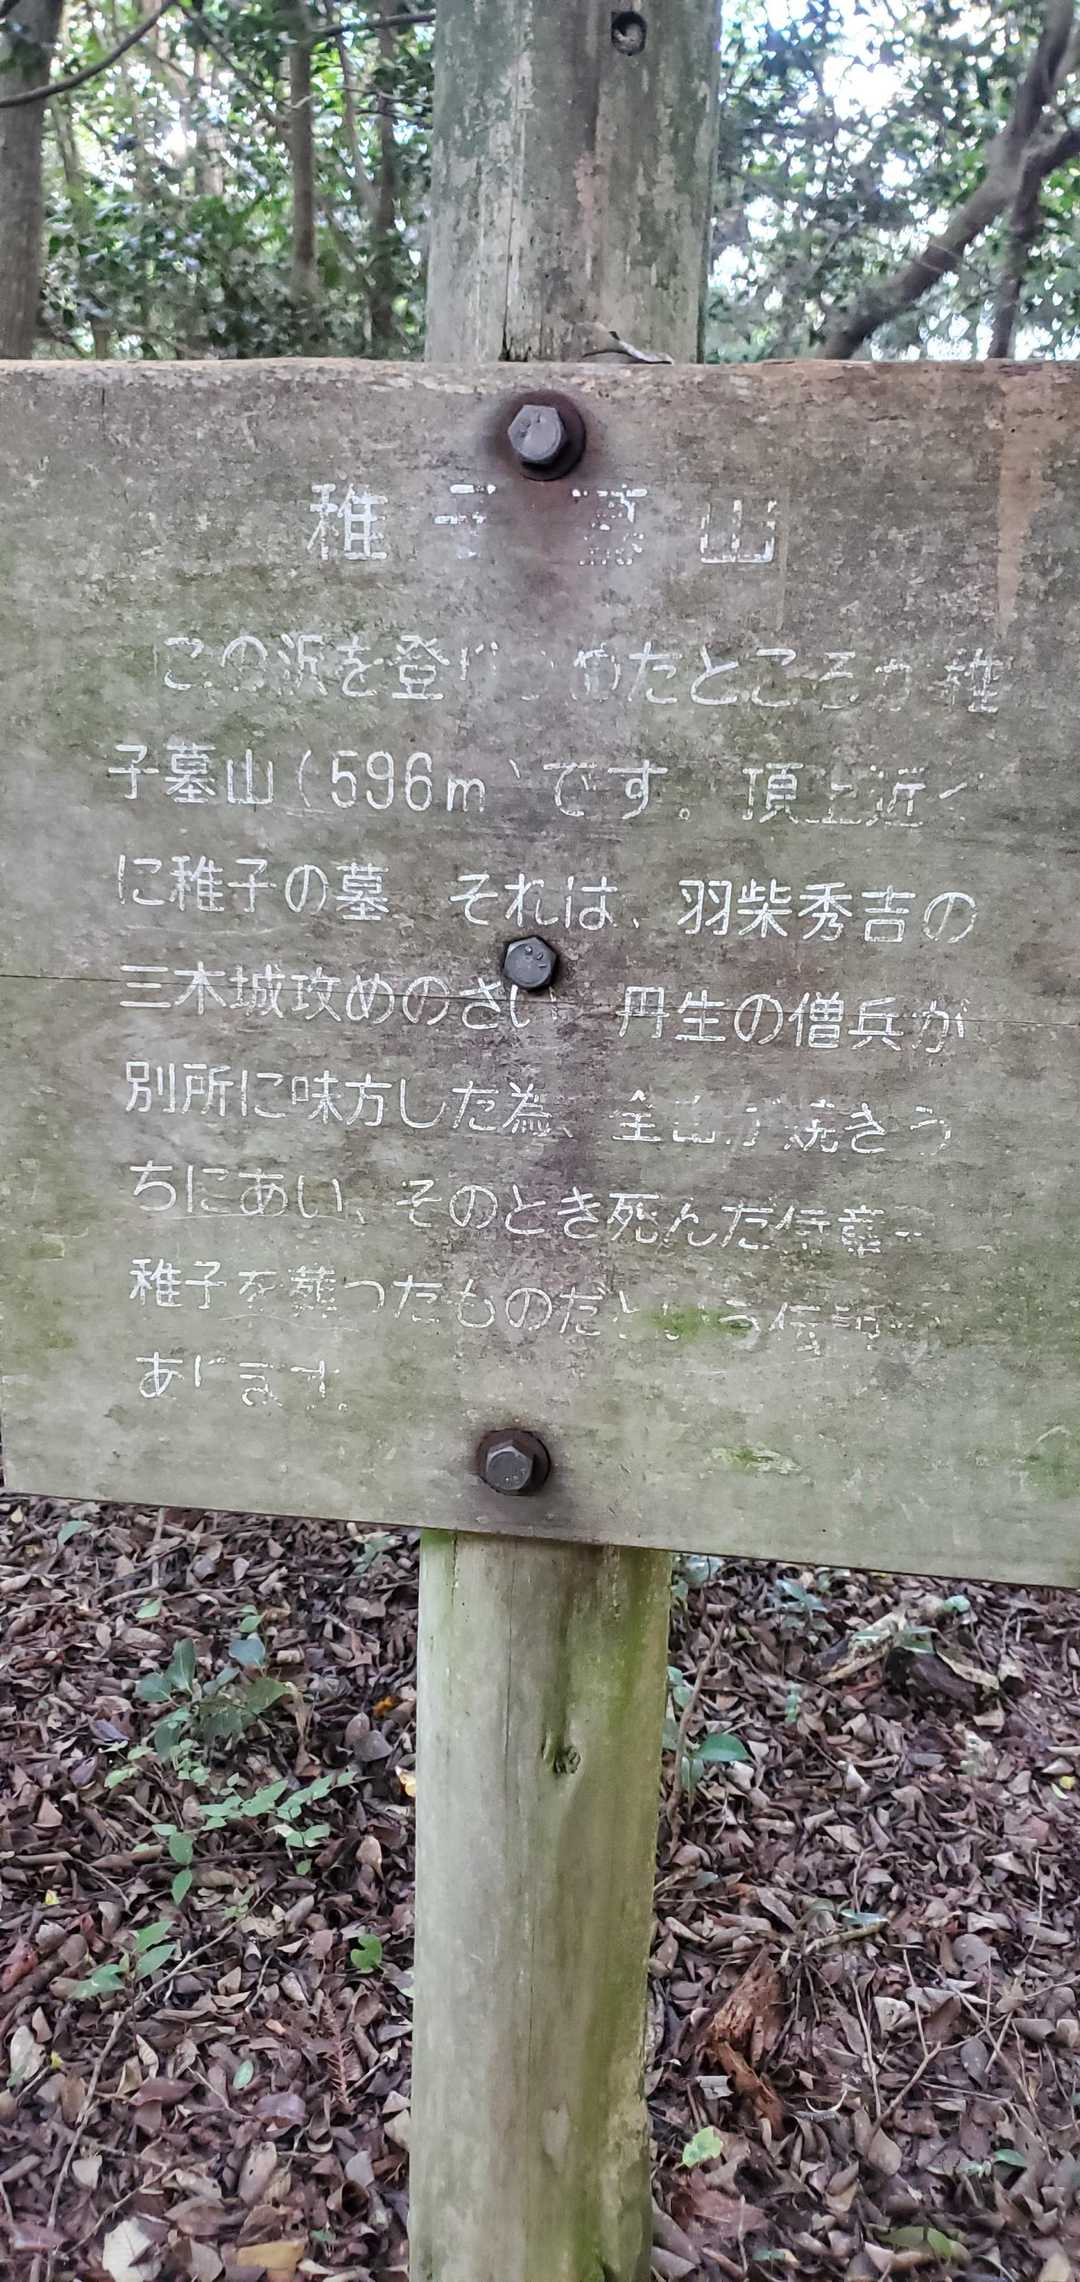 稚子墓山
この坂を登りつめたところが稚
子墓山(596m)です。頂上近く
に稚子の墓 それは、羽柴秀吉の
三木城攻めのさい 丹生の僧兵が
別所に味方した為、全山が焼きう
ちにあい、そのとき死んだ
稚子を葬ったものだという伝説が
あります。